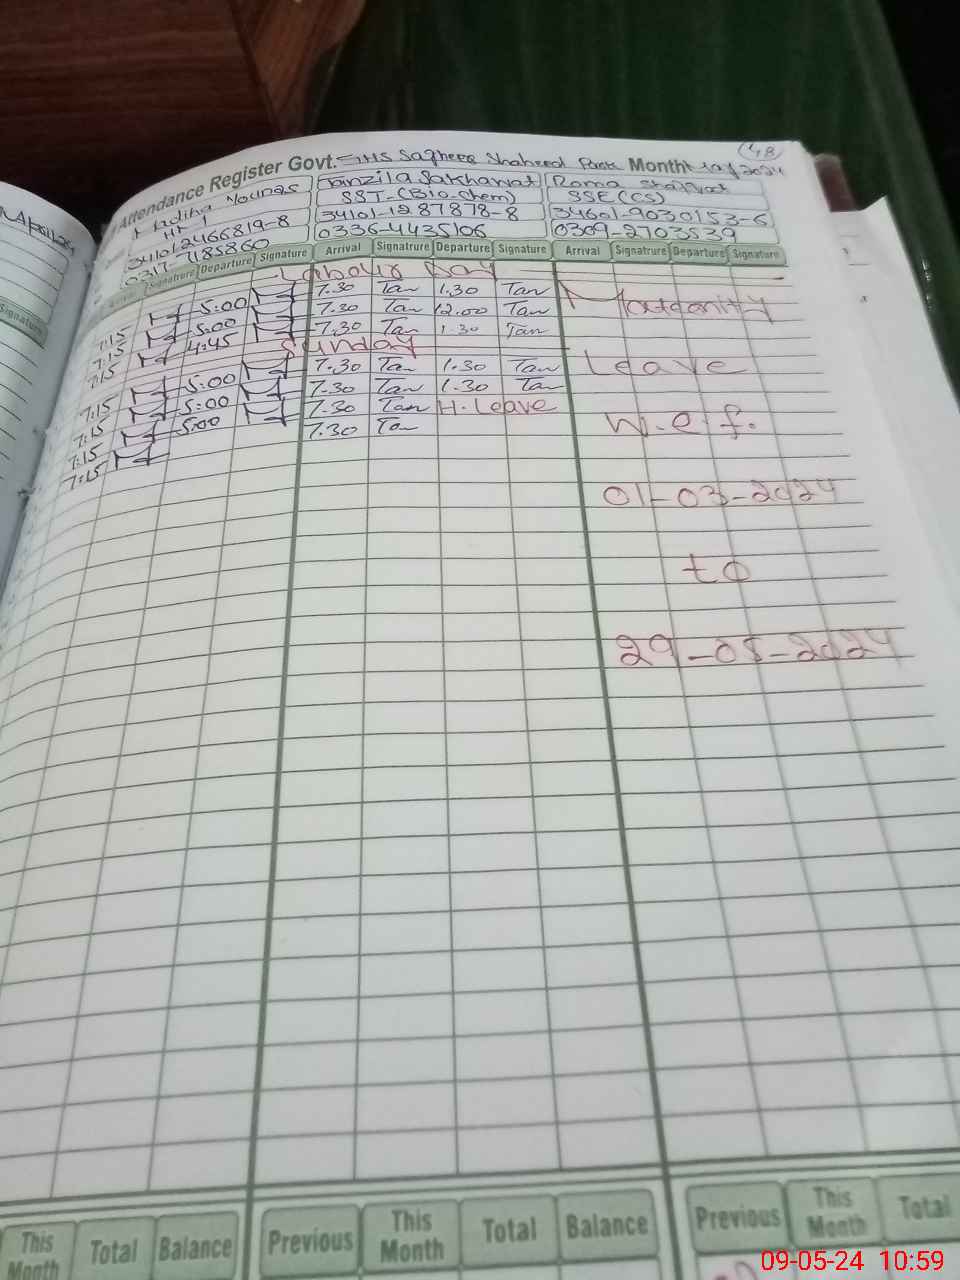 48
Attendance Register Govt. GHS Sagheer Shaheed Park Month May 2024
Madiha Younas
HM
34101-2466819-8
0317-7485860
Tanzila Sakhawat
SST-(Bio.chem)
34101-1287878-8
0336-4435106
Roma Shafqat
SSE(CS)
34601-9030153-6
0309-2703539
Arrival Signature Departure Signature Arrival Signature Departure Signature Arrival Signature Departure Signature
Labour Day
7:15 5:00 7.30 Tan 1.30 Tan
7:15 5:00 7.30 Tan 12.00 Tan
7:15 4:45 7.30 Tan 1.30 Tan
Sunday
7:15 5:00 7.30 Tan 1.30 Tan
7:15 5:00 7.30 Tan 1.30 Tan
7:15 5:00 7.30 Tan H. Leave
7:15 7.30 Tan
Leave
w.e.f.
01-03-2024
to
29-05-2024
April 24
Signature
This Month Total Balance Previous This Month Total Balance Previous This Month Total
09-05-24 10:59